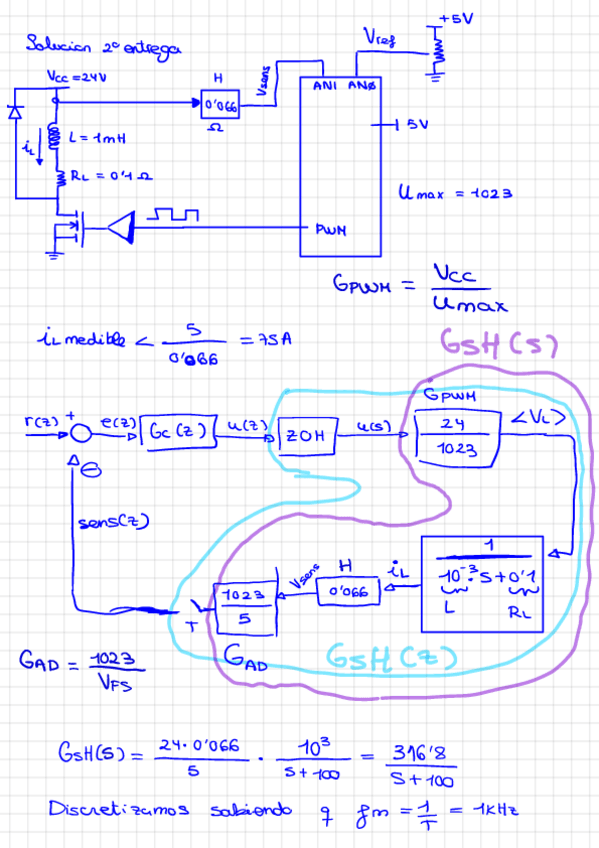 Solucion 2º entrega
+5V
Vref
Vcc = 24V
H
0'066
Ω
Vsens
AN1 ANØ
5V
iL
L = 1mH
RL = 0'1 Ω
Umax = 1023
PWM
GPWM = Vcc / Umax
iL medible < 5 / 0'066 = 75A
GSH(s)
GPWM
r(z) + e(z) Gc(z) u(z) ZOH u(s) 24 / 1023 <VL>
⊖
sens(z)
1 / 10⁻³·s+0'1
L RL
iL
H
0'066
Vsens
1023 / 5
T
GAD
GSH(z)
GAD = 1023 / VFS
GSH(s) = 24·0'066 / 5 · 10³ / s+100 = 316'8 / s+100
Discretizamos sabiendo q fm = 1/T = 1KHz